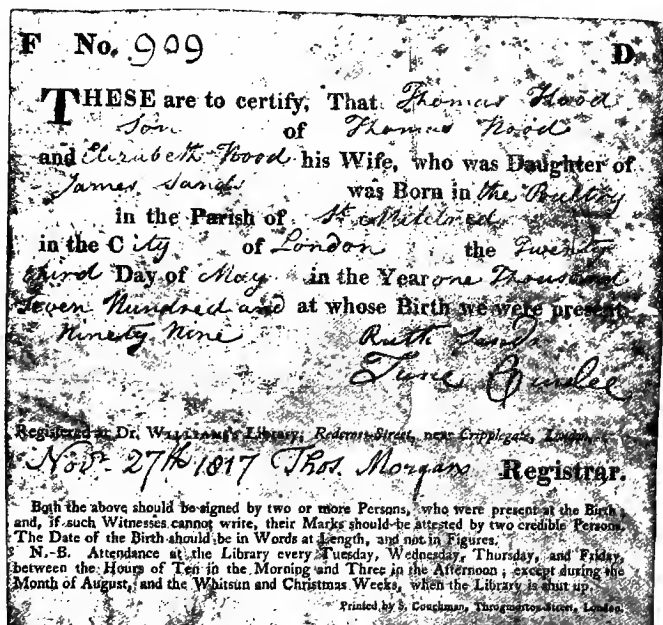 F No. 909 D
THESE are to certify, That Thomas Hood
Son of Thomas Hood
and Elizabeth Hood his Wife, who was Daughter of
James Sands was Born in the Poultry
in the Parish of St. Mildred
in the City of London the Twenty
third Day of May in the Year one Thousand
Seven Hundred and at whose Birth we were present.
Ninety Nine Ruth Sands
Registered at Dr. WILLIAMS's Library, Redcross-Street, near Cripplegate, London.
Novr. 27th 1817 Thos. Morgan Registrar.
Both the above should be signed by two or more Persons, who were present at the Birth;
and, if such Witnesses cannot write, their Marks should be attested by two credible Persons.
The Date of the Birth should be in Words at Length, and not in Figures.
N.-B. Attendance at the Library every Tuesday, Wednesday, Thursday, and Friday,
between the Hours of Ten in the Morning and Three in the Afternoon; except during the
Month of August, and the Whitsun and Christmas Weeks, when the Library is shut up.
Printed by S. Couchman, Throgmorton-Street, London.